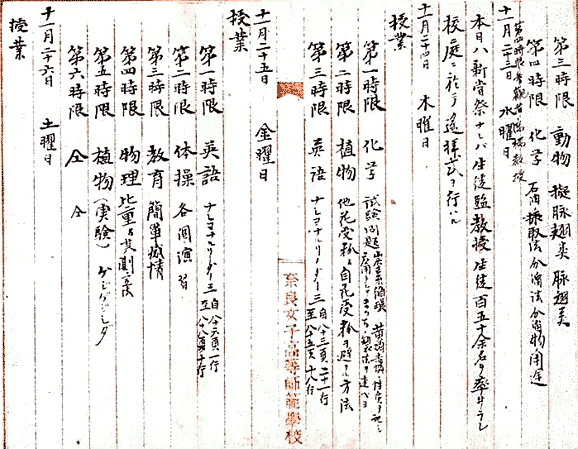 第三時限 動物 擬脉翅類 脉翅類
第四時限 化学 石油ノ採取法分溜法分溜物用途
十一月二十三日 水曜日
本日ハ新嘗祭ナレバ生徒監教授生徒百五十余名ヲ率ヰテ
校庭ニ於テ遙拝式ヲ行ハル
十一月二十四日 木曜日
授業
第一時限 化学 試験問題
第二時限 植物 他花受粉ト自花受粉ヲ避クル方法
第三時限 英語 ナショナルリーダー三
奈良女子高等師範学校
十一月二十五日 金曜日
授業
第一時限 英語 ナショナルリーダー三
第二時限 体操 各個演習
第三時限 教育 簡単感情
第四時限 物理 比重ト其測定法
第五時限 植物(実験) ゲジゲジシダ
第六時限 仝 仝
十一月二十六日 土曜日
授業